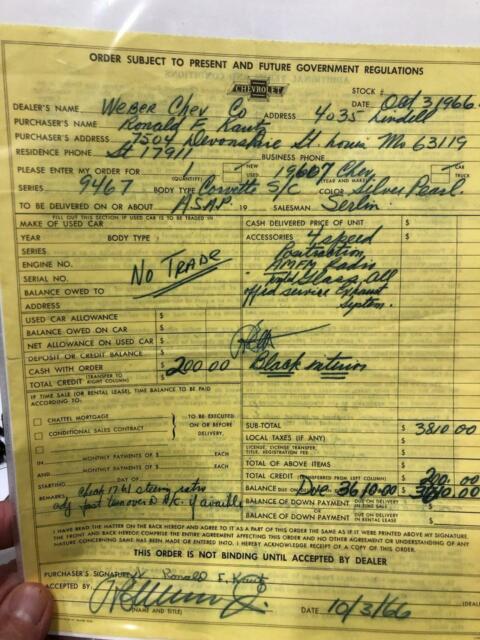 ORDER SUBJECT TO PRESENT AND FUTURE GOVERNMENT REGULATIONS
CHEVROLET
STOCK #
DEALER'S NAME Weber Chev Co ADDRESS 4035 Lindell DATE Oct 3 1966
PURCHASER'S NAME Ronald F. Kautz
PURCHASER'S ADDRESS 7504 Devonshire St. Louis Mo 63119
RESIDENCE PHONE St 17911 BUSINESS PHONE
PLEASE ENTER MY ORDER FOR 1 (QUANTITY) NEW USED 1967 Chev (YEAR AND MAKE) CAR TRUCK
SERIES 9467 BODY TYPE Corvette S/C COLOR Silver Pearl
TO BE DELIVERED ON OR ABOUT A.S.A.P. 19 SALESMAN Serlin
FILL OUT THIS SECTION IF USED CAR IS TO BE TRADED IN
MAKE OF USED CAR CASH DELIVERED PRICE OF UNIT $
YEAR BODY TYPE ACCESSORIES 4 speed
SERIES Positraction,
ENGINE NO. AM FM Radio
SERIAL NO. NO TRADE Tinted Glass, All
BALANCE OWED TO offed service Exhaust
ADDRESS System.
USED CAR ALLOWANCE $
BALANCE OWED ON CAR $
NET ALLOWANCE ON USED CAR $
DEPOSIT OR CREDIT BALANCE $
CASH WITH ORDER $ 200.00 Black interior
TOTAL CREDIT (TRANSFER TO RIGHT COLUMN) $
IF TIME SALE (OR RENTAL LEASE), TIME BALANCE TO BE PAID
ACCORDING TO:
CHATTEL MORTGAGE
CONDITIONAL SALES CONTRACT
TO BE EXECUTED
ON OR BEFORE
DELIVERY.
SUB-TOTAL $ 3810.00
LOCAL TAXES (IF ANY) $
LICENSE, LICENSE TRANSFER,
TITLE, REGISTRATION FEE $
IN MONTHLY PAYMENTS OF $ EACH
TOTAL OF ABOVE ITEMS $
AND MONTHLY PAYMENTS OF $ EACH
TOTAL CREDIT (TRANSFERRED FROM LEFT COLUMN) $ 200.00
STARTING DAY OF
BALANCE DUE Due 3610.00 $ 3610.00
REMARKS
BALANCE OF DOWN PAYMENT DUE ON DELIVERY IN TIME SALE $
BALANCE OF DOWN PAYMENT DUE ON DELIVERY IN RENTAL LEASE $
I HAVE READ THE MATTER ON THE BACK HEREOF AND AGREE TO IT AS A PART OF THIS ORDER THE SAME AS IF IT WERE PRINTED ABOVE MY SIGNATURE.
THE FRONT AND BACK HEREOF COMPRISE THE ENTIRE AGREEMENT AFFECTING THIS ORDER AND NO OTHER AGREEMENT OR UNDERSTANDING OF ANY
NATURE CONCERNING SAME HAS BEEN MADE OR ENTERED INTO. I HEREBY ACKNOWLEDGE RECEIPT OF A COPY OF THIS ORDER.
THIS ORDER IS NOT BINDING UNTIL ACCEPTED BY DEALER
PURCHASER'S SIGNATURE X Ronald F. Kautz
ACCEPTED BY:
(NAME AND TITLE) DATE 10/3/66 (DEALE